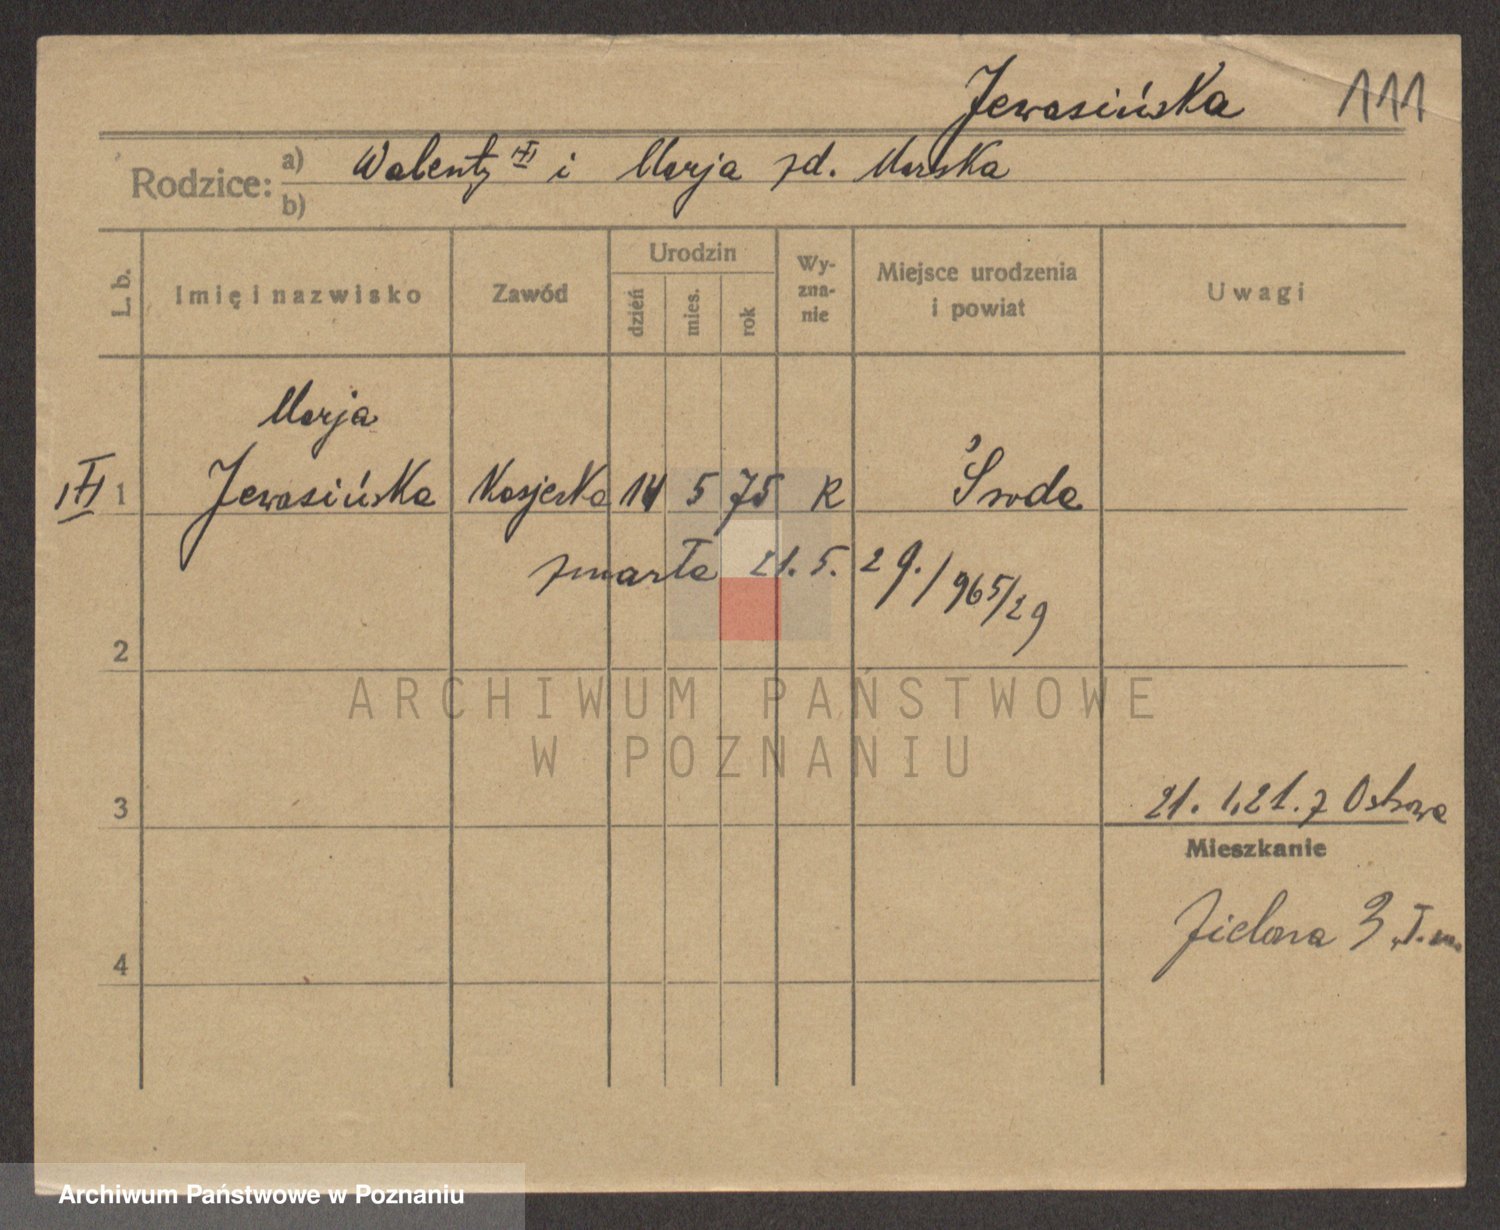 Jewasińska 111
Rodzice: a) Walenty i Marja zd. Murska
b)
L. b. Imię i nazwisko Zawód Urodzin dzień mies. rok Wyznanie Miejsce urodzenia i powiat Uwagi
Marja
1 Jewasińska Kasjerka 14 5 75 K Środa
zmarła 21. 5. 29. / 965/29
2
ARCHIWUM PAŃSTWOWE
W POZNANIU
21. 1. 21. z Ostrowa
3
Mieszkanie
Zielona 3
4
Archiwum Państwowe w Poznaniu